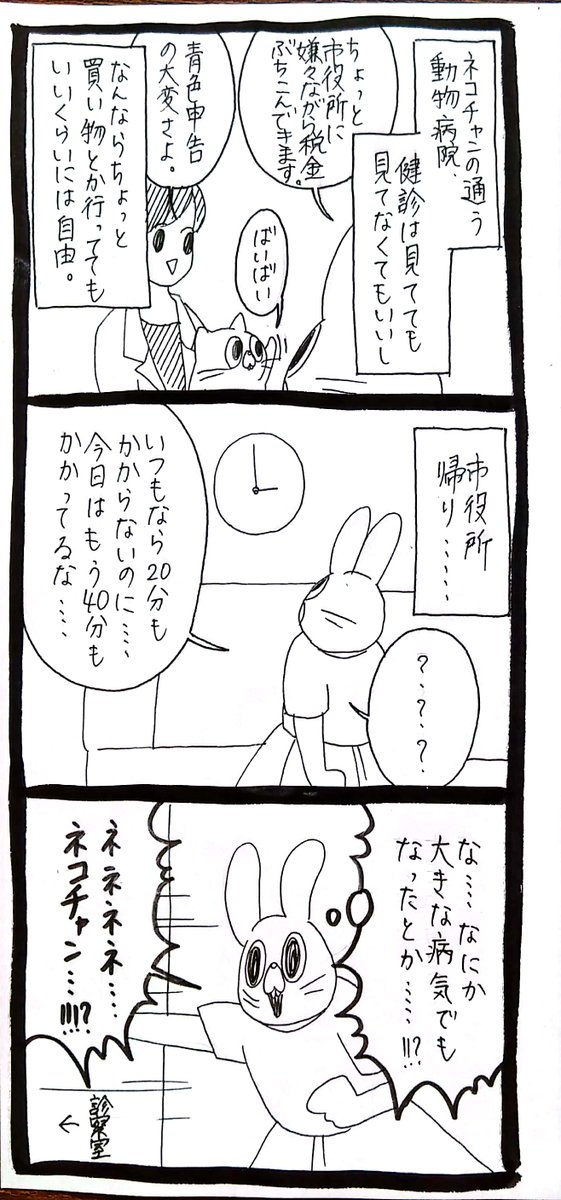 ネコチャンの通う
動物病院、
健診は見てても
見てなくてもいいし
ちょっと
市役所に
嫌々ながら税金
ぶちこんできます。
青色申告
の大変さよ。
ばいばい
なんならちょっと
買い物とか行ってても
いいくらいには自由。
市役所
帰り……
?、?、?
いつもなら20分も
かからないのに……
今日はもう40分も
かかってるな……
な……なにか
大きな病気でも
なったとか……!!?
ネネネネ…
ネコチャン…!!!?
診察室
←